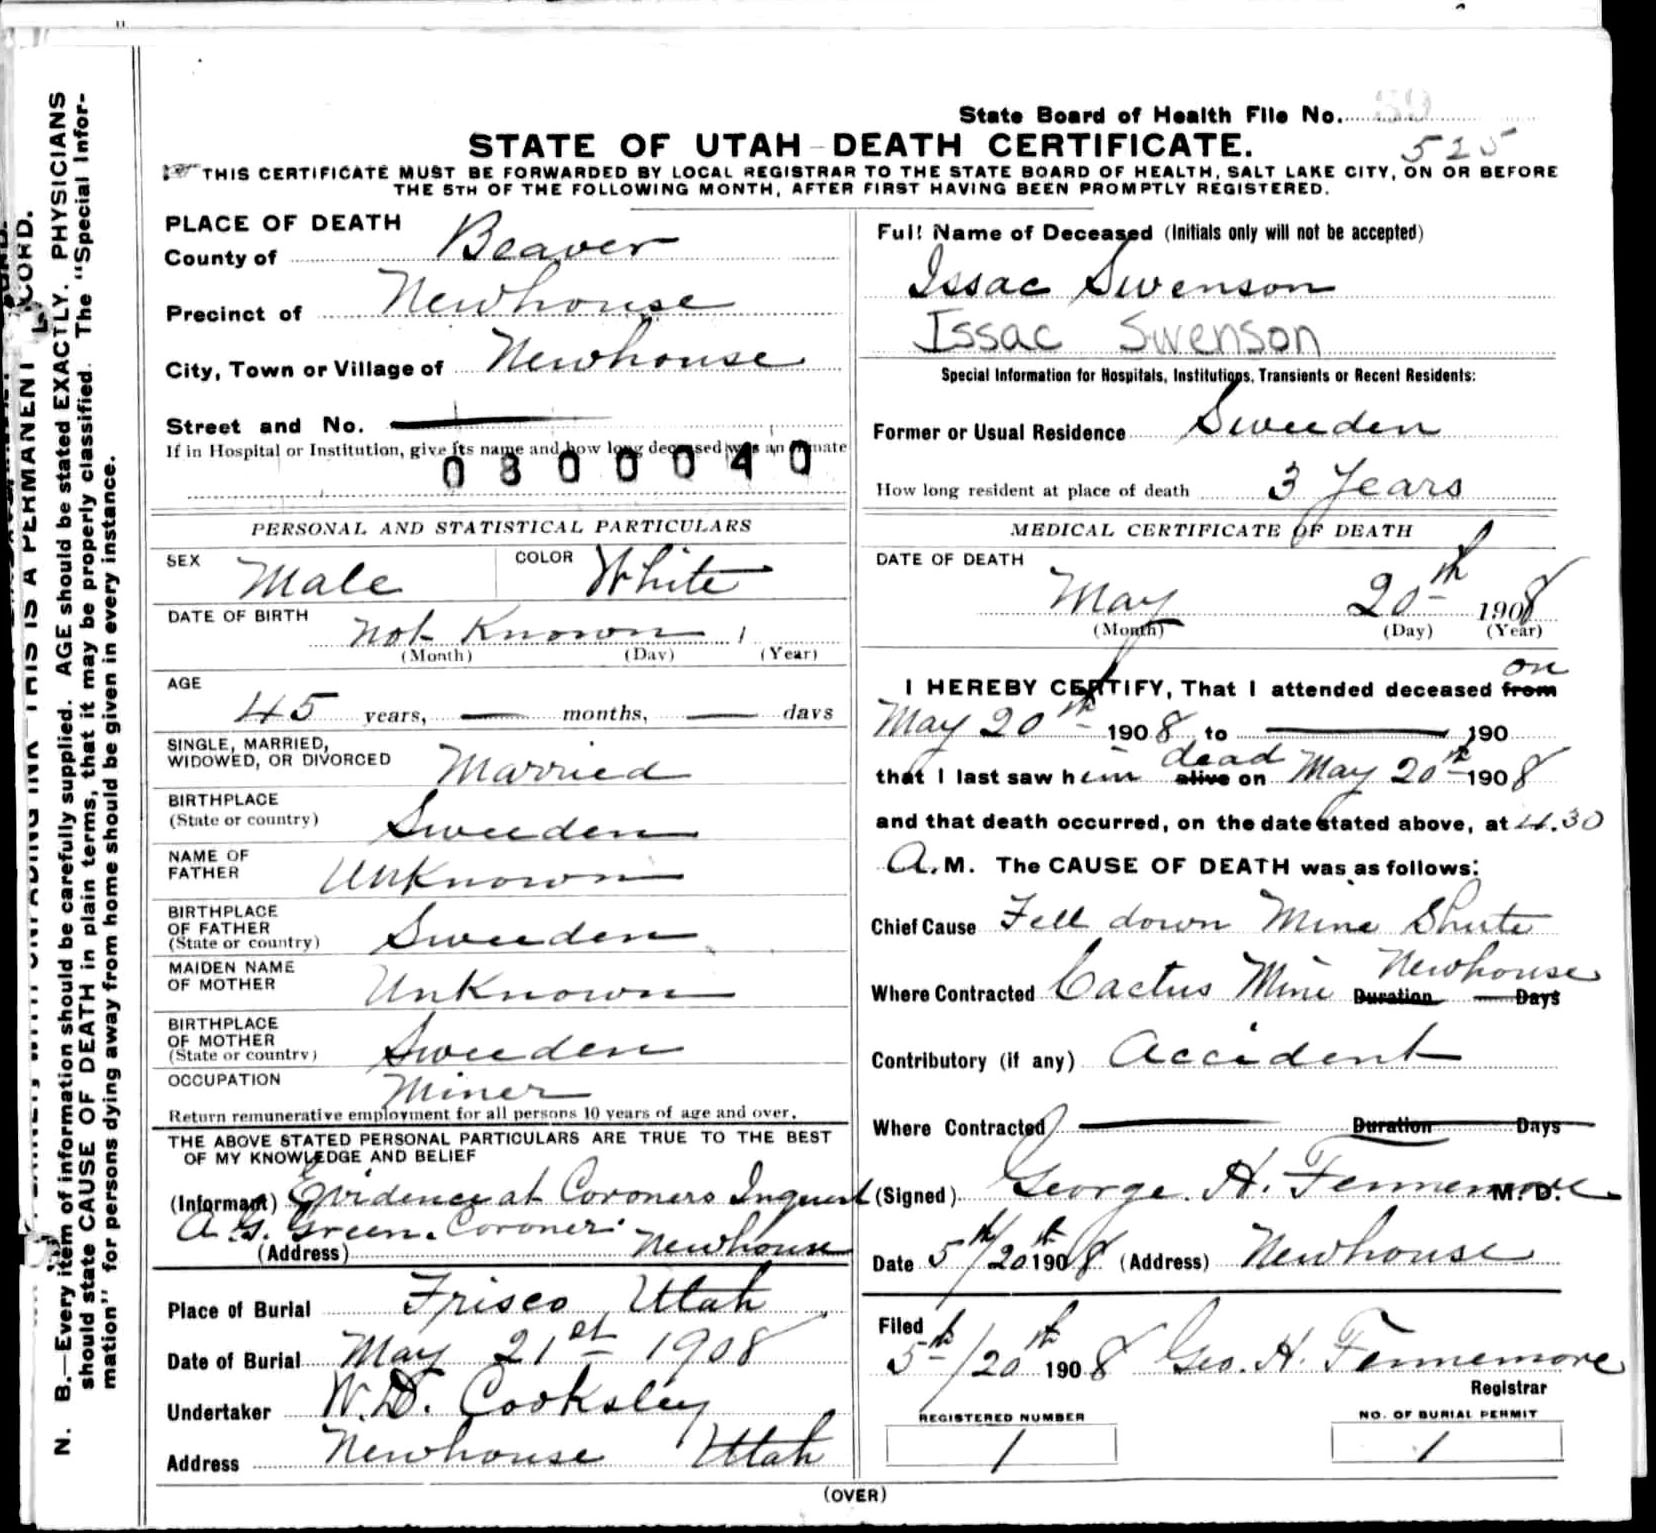 State Board of Health File No. 59
STATE OF UTAH-DEATH CERTIFICATE.
525
THIS CERTIFICATE MUST BE FORWARDED BY LOCAL REGISTRAR TO THE STATE BOARD OF HEALTH, SALT LAKE CITY, ON OR BEFORE
THE 5TH OF THE FOLLOWING MONTH, AFTER FIRST HAVING BEEN PROMPTLY REGISTERED.
PLACE OF DEATH
County of Beaver
Precinct of Newhouse
City, Town or Village of Newhouse
Street and No. —
If in Hospital or Institution, give its name and how long deceased was an inmate
0800040
PERSONAL AND STATISTICAL PARTICULARS
SEX Male COLOR White
DATE OF BIRTH not Known 1
(Month) (Day) (Year)
AGE
45 years, — months, — days
SINGLE, MARRIED,
WIDOWED, OR DIVORCED Married
BIRTHPLACE
(State or country) Sweeden
NAME OF
FATHER Unknown
BIRTHPLACE
OF FATHER
(State or country) Sweeden
MAIDEN NAME
OF MOTHER Unknown
BIRTHPLACE
OF MOTHER
(State or country) Sweeden
OCCUPATION Miner
Return remunerative employment for all persons 10 years of age and over.
THE ABOVE STATED PERSONAL PARTICULARS ARE TRUE TO THE BEST
OF MY KNOWLEDGE AND BELIEF
(Informant) Evidence at Coroners Inquest
A. G. Green. Coroner.
(Address) Newhouse
Place of Burial Frisco, Utah
Date of Burial May 21st 1908
Undertaker W. D. Cooksley
Address Newhouse Utah
Full Name of Deceased (Initials only will not be accepted)
Issac Swenson
Issac Swenson
Special Information for Hospitals, Institutions, Transients or Recent Residents:
Former or Usual Residence Sweeden
How long resident at place of death 3 Years
MEDICAL CERTIFICATE OF DEATH
DATE OF DEATH
May 20th 1908
(Month) (Day) (Year)
on
I HEREBY CERTIFY, That I attended deceased from
May 20th 1908 to — 190
dead
that I last saw him alive on May 20th 1908
and that death occurred, on the date stated above, at 4.30
A. M. The CAUSE OF DEATH was as follows:
Chief Cause Fell down Mine Shute
Newhouse
Where Contracted Cactus Mine Duration — Days
Contributory (if any) Accident
Where Contracted — Duration Days
(Signed) George. H. Fennemore M. D.
Date 5th/20th 1908 (Address) Newhouse
Filed
5th/20th 1908 Geo. H. Fennemore
Registrar
REGISTERED NUMBER
1
NO. OF BURIAL PERMIT
1
(OVER)
N. B.—Every item of information should be carefully supplied. AGE should be stated EXACTLY. PHYSICIANS
should state CAUSE OF DEATH in plain terms, that it may be properly classified. The "Special Infor-
mation" for persons dying away from home should be given in every instance.